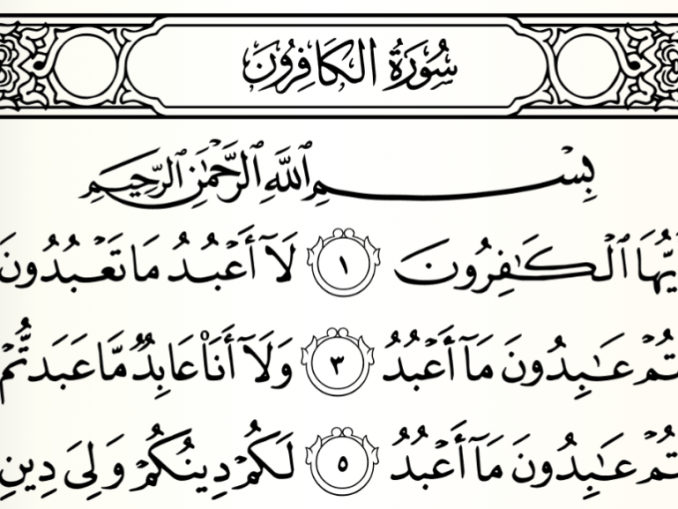 سُورَةُ الكَافِرُونَ
بِسْمِ ٱللَّهِ ٱلرَّحْمَٰنِ ٱلرَّحِيمِ
يُّهَا ٱلْكَٰفِرُونَ ١ لَآ أَعْبُدُ مَا تَعْبُدُونَ
تُمْ عَٰبِدُونَ مَآ أَعْبُدُ ٣ وَلَآ أَنَا۠ عَابِدٌ مَّا عَبَدتُّمْ
تُمْ عَٰبِدُونَ مَآ أَعْبُدُ ٥ لَكُمْ دِينُكُمْ وَلِىَ دِينِ